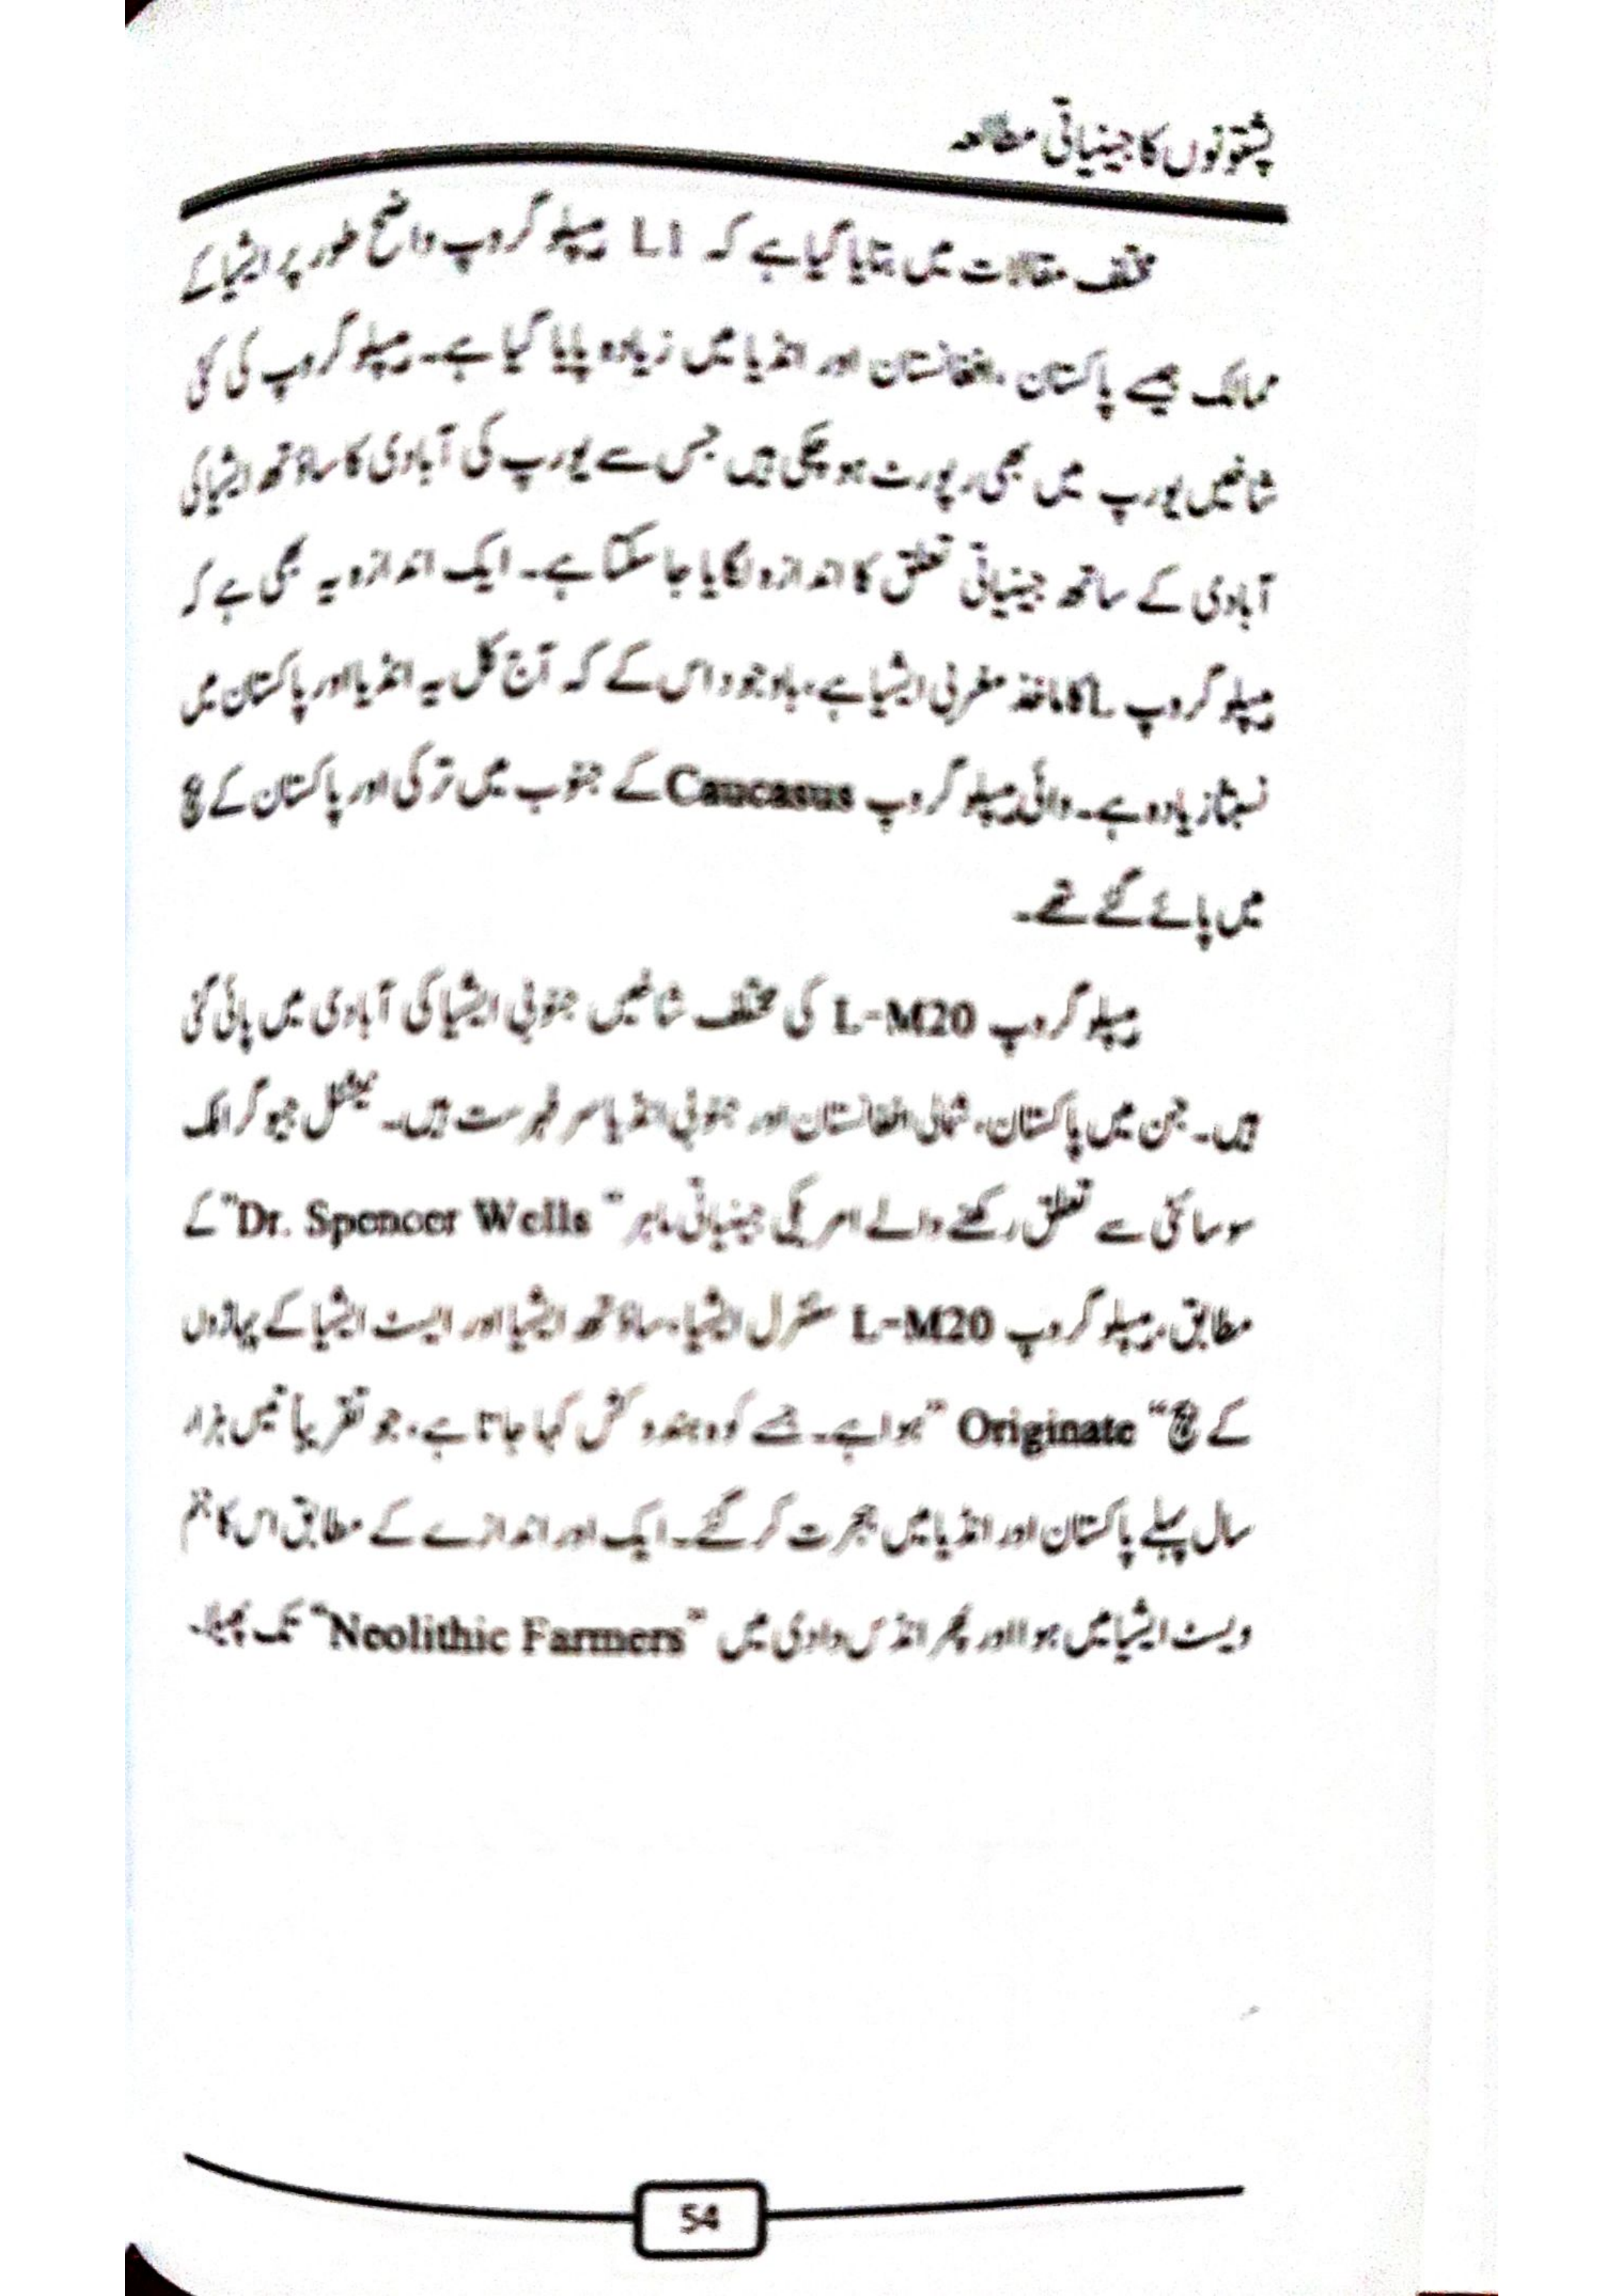 پشتونوں کا جینیاتی مطالعہ
مختلف مقالات میں بتایا گیا ہے کہ L1 ہیپلو گروپ واضح طور پر ایشیا کے
ممالک جیسے پاکستان، افغانستان اور انڈیا میں زیادہ پایا گیا ہے۔ ہیپلو گروپ کی کئی
شاخیں یورپ میں بھی رپورٹ ہو چکی ہیں جس سے یورپ کی آبادی کا ساؤتھ ایشیا کی
آبادی کے ساتھ جینیاتی تعلق کا اندازہ لگایا جا سکتا ہے۔ ایک اندازہ یہ بھی ہے کہ
ہیپلو گروپ L کا ماخذ مغربی ایشیا ہے، باوجود اس کے کہ آج کل یہ انڈیا اور پاکستان میں
نسبتاً زیادہ ہے۔ وائی ہیپلو گروپ Caucasus کے جنوب میں ترکی اور پاکستان کے بیچ
میں پائے گئے تھے۔
ہیپلو گروپ L-M20 کی مختلف شاخیں جنوبی ایشیا کی آبادی میں پائی گئی
ہیں۔ جن میں پاکستان، شمالی افغانستان اور جنوبی انڈیا سر فہرست ہیں۔ نیشنل جیوگرافک
سوسائٹی سے تعلق رکھنے والے امریکی جینیاتی ماہر "Dr. Spencer Wells" کے
مطابق، ہیپلو گروپ L-M20 سنٹرل ایشیا، ساؤتھ ایشیا اور ایسٹ ایشیا کے پہاڑوں
کے بیچ "Originate" ہوا ہے۔ جسے کوہ ہندوکش کہا جاتا ہے، جو تقریباً تیس ہزار
سال پہلے پاکستان اور انڈیا میں ہجرت کر گئے۔ ایک اور اندازے کے مطابق اس کا جنم
ویسٹ ایشیا میں ہوا اور پھر انڈس وادی میں "Neolithic Farmers" تک پھیلا۔
54